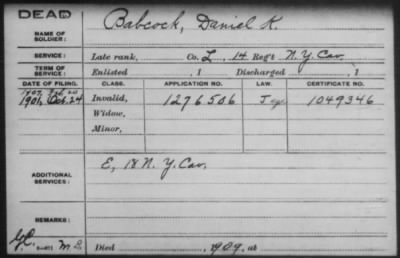 DEAD
NAME OF SOLDIER: Babcock, Daniel K.
SERVICE: Late rank, Co. L, 14 Reg't N.Y. Cav.
TERM OF SERVICE: Enlisted , 1 Discharged , 1
DATE OF FILING. CLASS. APPLICATION NO. LAW. CERTIFICATE NO.
1907,
1901, Oct. 24 Invalid, 1276506 1049346
Widow,
Minor,
ADDITIONAL SERVICES: E, 18 N.Y. Cav.
REMARKS:
Died , 1909, at